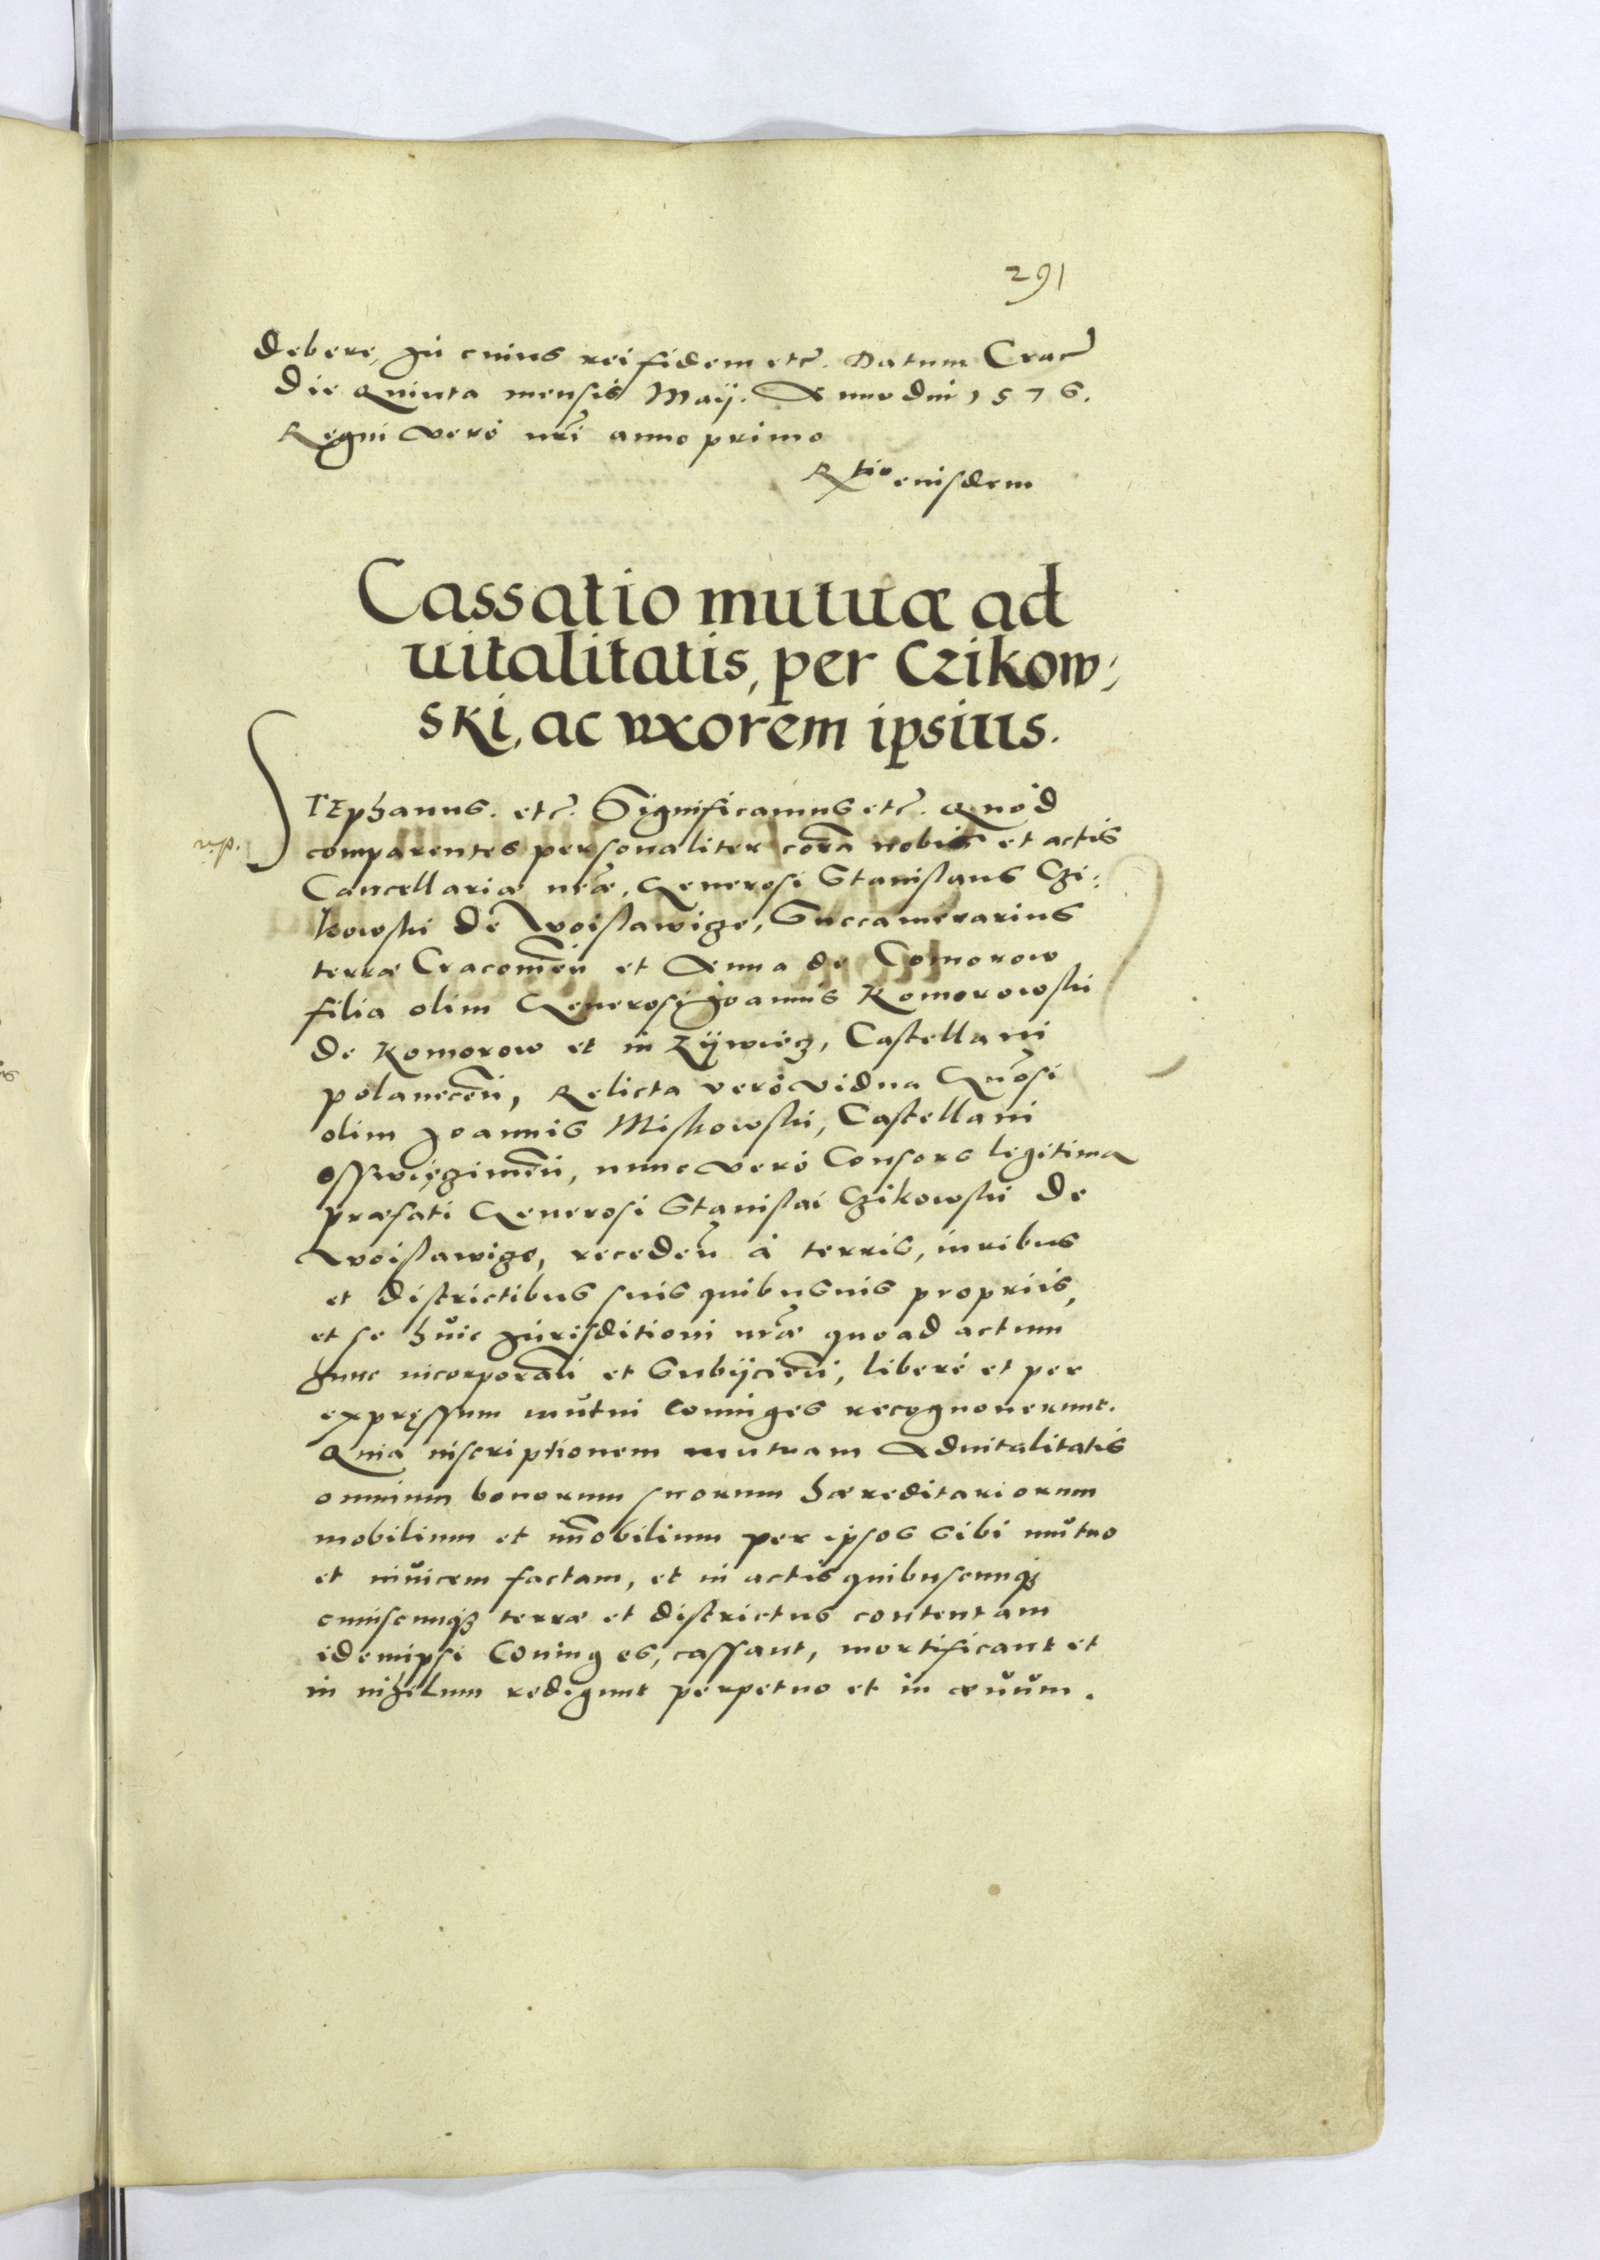 291
debere, In cuius rei fidem etc. Datum Crac
die Quinta mensis Maij. Anno dni 1576.
Regni vero nri anno primo
Rtio eiusdem
Cassatio mutuæ ad
uitalitatis, per Czikow:
ski, ac uxorem ipsius.
STEphanus. etc. Significamus etc. Quod
comparentes personaliter cora nobis et actis
Cancellariæ nræ, Generosi Stanislaus Czi:
kowski de Woislawicze, Succamerarius
terræ Cracouien et Anna de Comorow
filia olim Generosi Joannis Komorowski
de Komorow et in Zÿwiecz, Castellani
polanecen, Relicta vero vidua Gnosi
olim Joannis Miskowski, Castellani
osswięcimen, nunc vero Consors legitima
præfati Generosi Stanislai Czikowski de
Woislawicze, receden à terris, iuribus
et districtibus suis quibusuis propriis,
et se huic Jurisditioni nræ quoad actum
hunc incorporan et Subijcien, liberè et per
expręssum mutui Coniuges recognouerunt.
Quia inscriptionem mutuam Aduitalitatis
omnium bonorum suorum hæreditariorum
mobilium et immobilium per ipsos sibi mutuo
et inuicem factam, et in actis quibuscunqȝ
cuiuscunqȝ terræ et districtus contentam
idemipsi Coniuges, cassant, mortificant et
in nihilum redigunt perpetuo et in æuum.